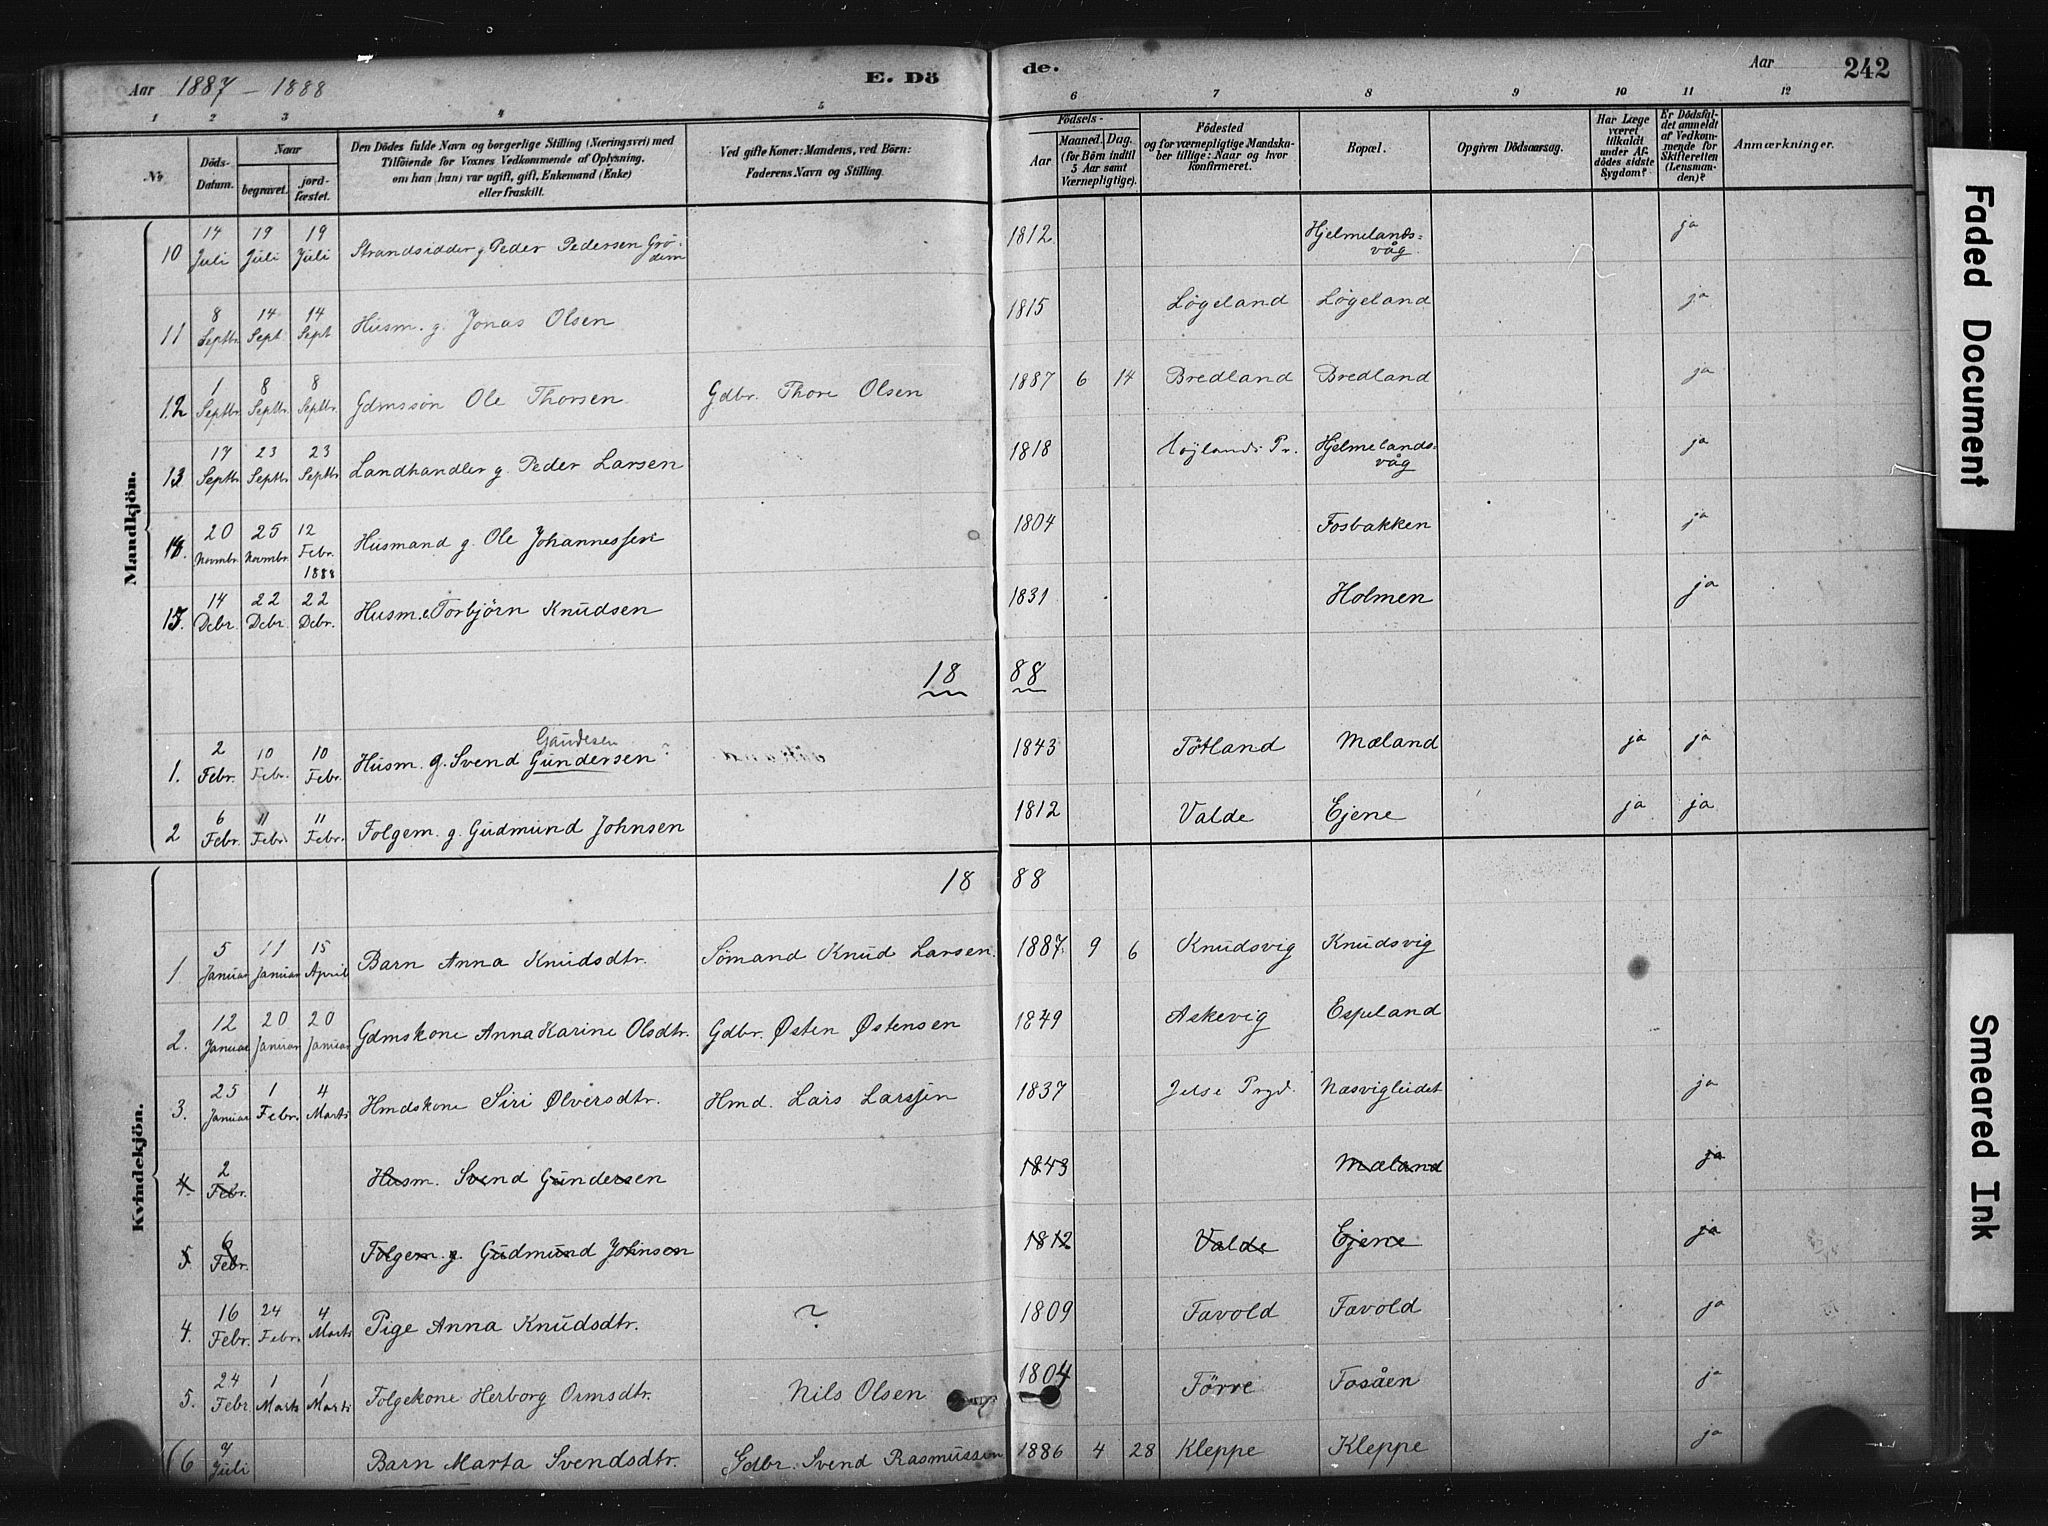 Aar 1887 - 1888 E. Dö de. Aar 242
1 2 3 4 5 6 7 8 9 10 11 12
No Döds-Datum. Naar begravet. jord-fæstet. Den Dödes fulde Navn og borgerlige Stilling (Næringsvei) med Tilföiende for Voxnes Vedkommende af Oplysning, om han (hun) var ugift, gift, Enkemand (Enke) eller fraskilt. Ved gifte Koner: Mandens, ved Börn: Faderens Navn og Stilling. Födsels- Aar Maaned. Dag. (for Börn indtil 5 Aar samt Værnepligtige). Födested og for værnepligtige Mandskaber tillige: Naar og hvor konfirmeret. Bopæl. Opgiven Dödsaarsag. Har Læge været tilkaldt under Afdödes sidste Sygdom? Er Dödsfaldet anmeldt af Vedkommende for Skifteretten (Lensmanden)? Anmærkninger.
Mandkjön.
10 14 Juli 19 Juli 19 Juli Strandsidder g Peder Pedersen Grödem 1812 Hjelmelandsvåg ja
11 8 Septbr. 14 Sept. 14 Sept Husm. g. Jonas Olsen 1815 Løgeland Løgeland ja
12 1 Septbr. 8 Septbr. 8 Septbr. Gdmssøn Ole Thorsen Gdbr. Thore Olsen 1887 6 14 Bredland Bredland ja
13 17 Septbr 23 Septbr 23 Septbr Landhandler g. Peder Larsen 1818 Højlands Pr. Hjelmelandsvåg ja
14. 20 Novmbr. 25 Novmbr. 12 Febr. 1888 Husmand g. Ole Johannessen 1804 Fosbakken ja
15. 14 Debr. 22 Debr. 22 Debr. Husm. e. Torbjörn Knudsen 1831 Holmen ja
18 88
1. 2 Febr. 10 Febr. 10 Febr. Husm. g. Svend Gundersen Gaudesen ? 1843 Tötland Mæland ja ja
2 6 Febr. 11 Febr. 11 Febr. Folgem. g. Gudmund Johnsen 1812 Valde Ejene ja ja
Kvindekjön.
18 88
1 5 Januar 11 Januar 15 April Barn Anna Knudsdtr. Sömand Knud Larsen. 1887 9 6 Knudsvig Knudsvig
2. 12 Januar 20 Januar 20 Januar Gdmskone Anna Karine Olsdtr. Gdbr. Østen Østensen 1849 Askevig Espeland
3. 25 Januar 1 Febr. 4 Marts Hmdskone Siri Ølversdtr. Hmd. Lars Larssen 1837 Jelse Prgd. Næsvigleidet ja
4. 2 Febr. Husm. Svend Gundersen 1843 Mæland ja
5 6 Febr. Folgem. g. Gudmund Johnsen 1812 Valde Ejene ja
4. 16 Febr. 24 Febr. 4 Marts Pige Anna Knudsdtr. ? 1809 Favold Favold ja
5. 24 Febr 1 Marts 1 Marts Folgekone Herborg Ormsdtr. Nils Olsen 1804 Förre Fosåen ja
6 7 Juli Barn Marta Svendsdtr. Gdbr. Svend Rasmussen 1886 4 28 Kleppe Kleppe ja
Faded Document
Smeared Ink